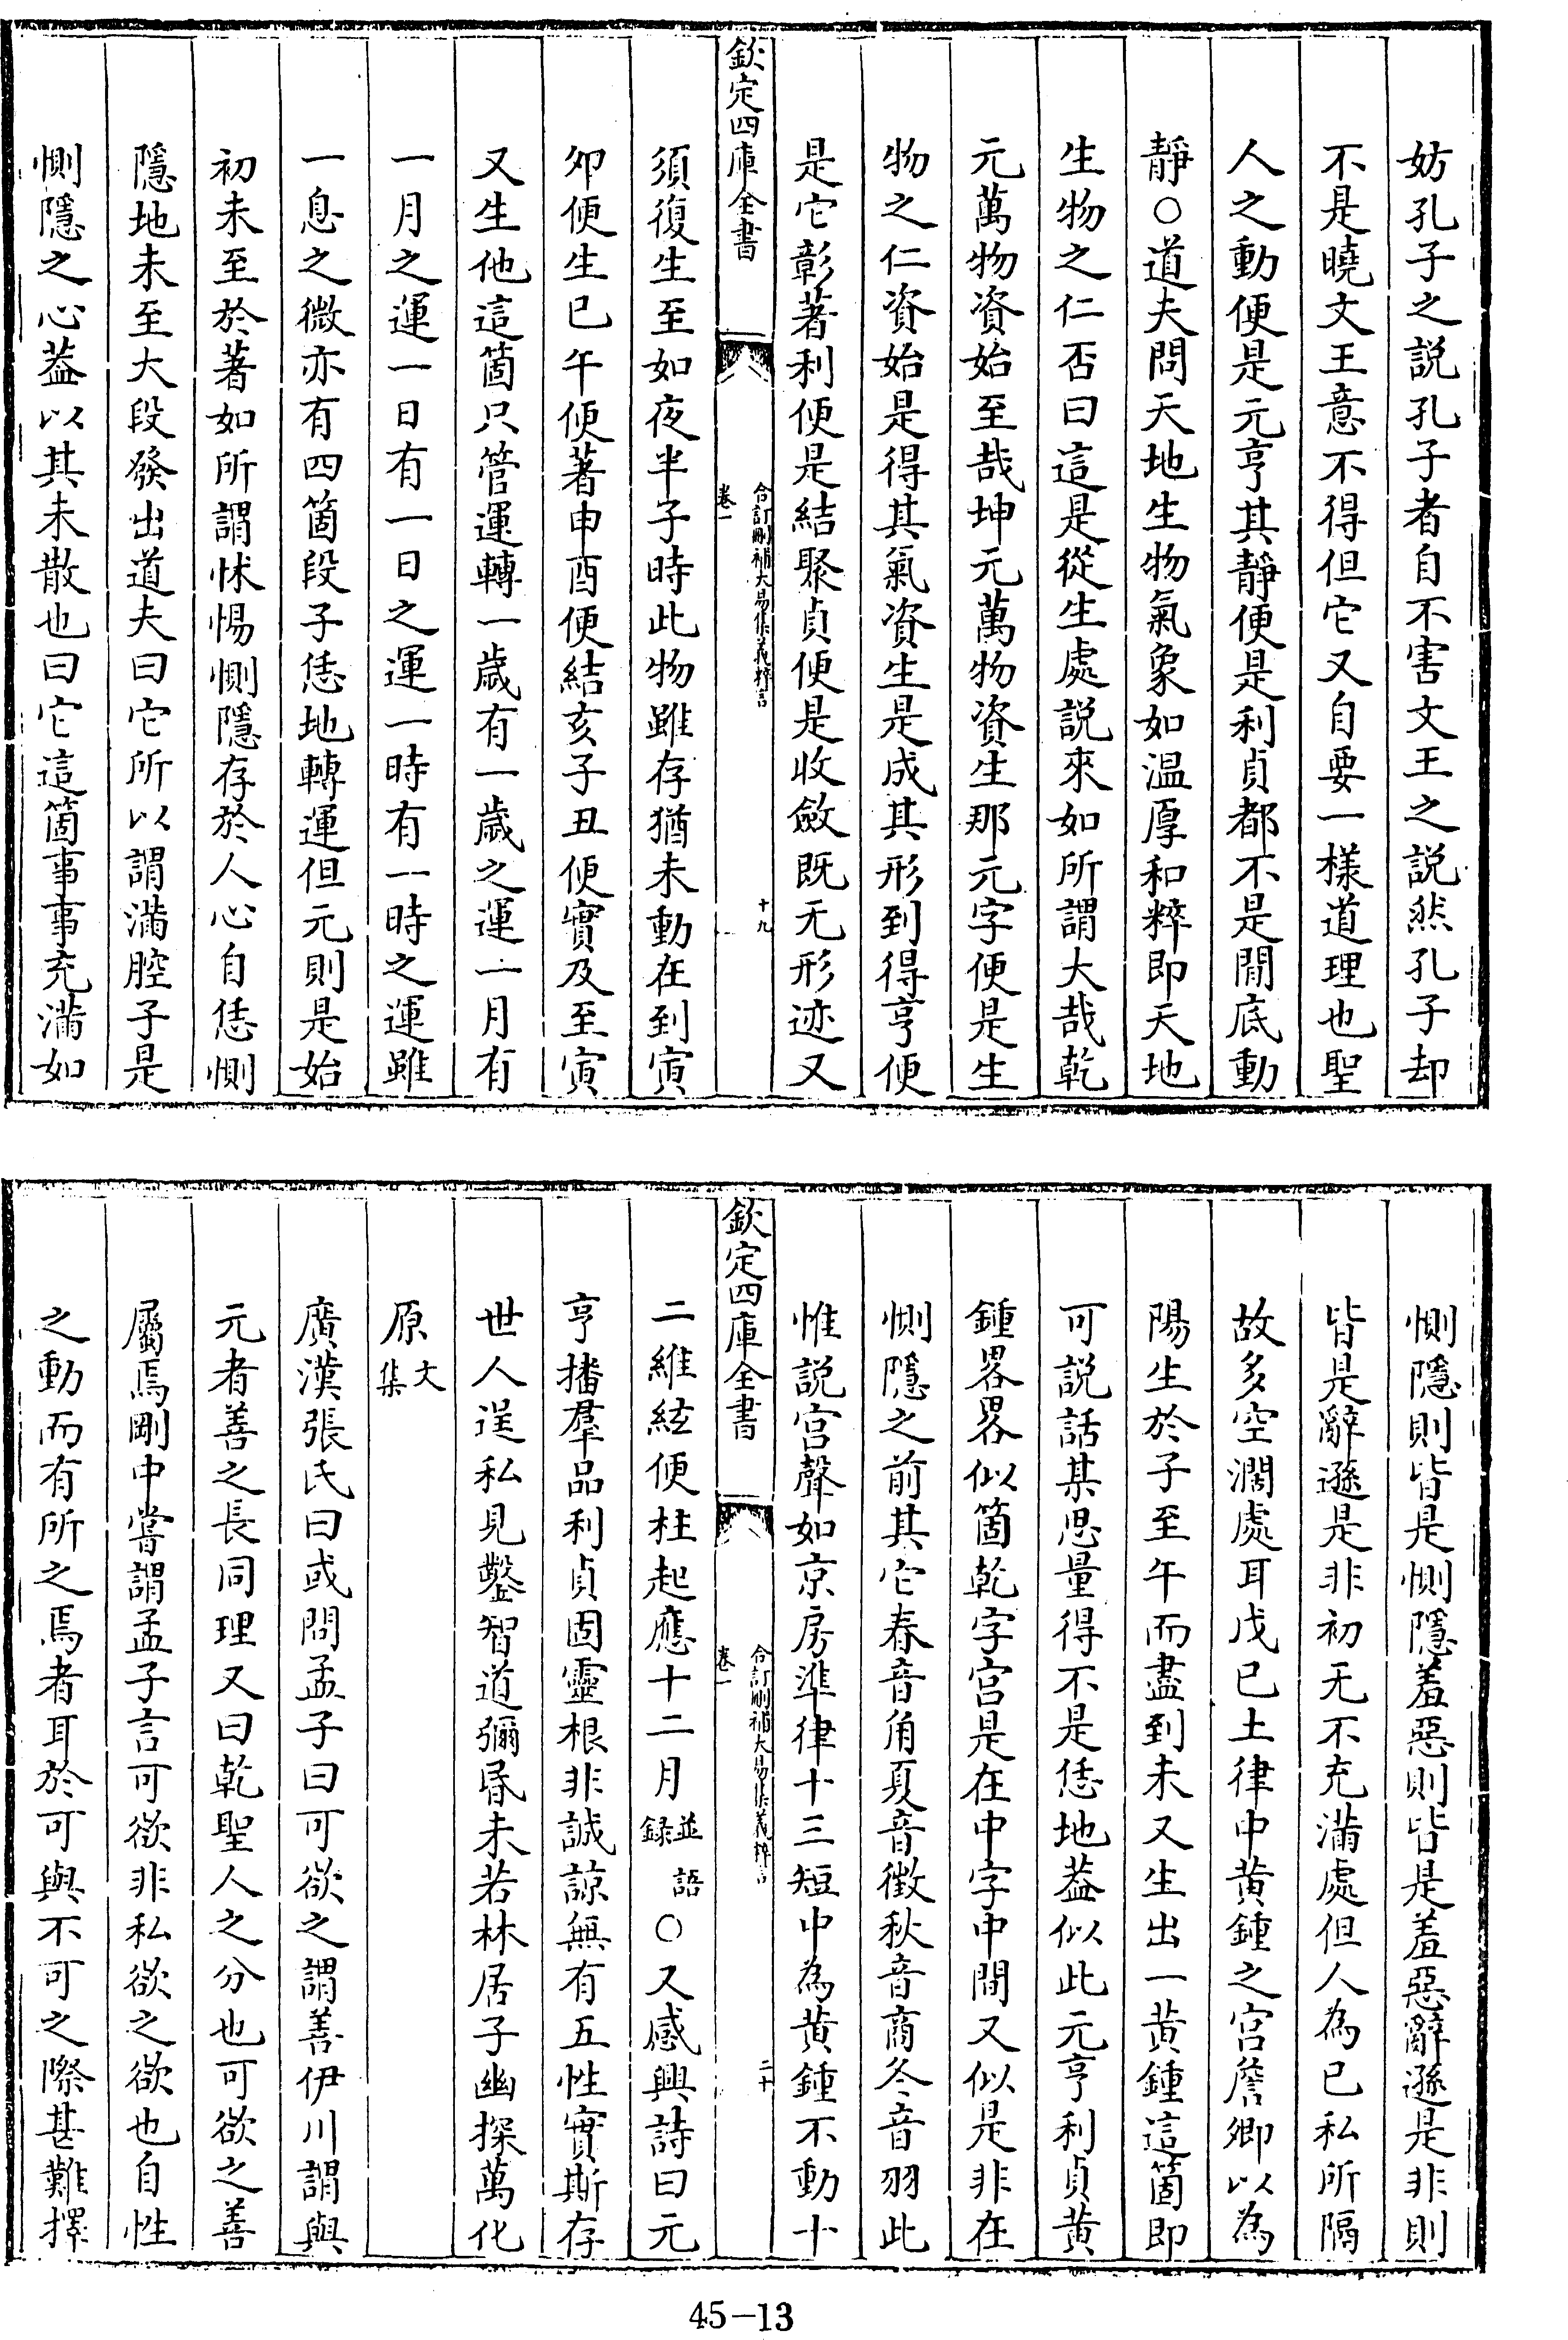 妨孔子之説孔子者自不害文王之説然孔子却
不是曉文王意不得但它又自要一樣道理也聖
人之動便是元亨其靜便是利貞都不是閒底動
靜○道夫問天地生物氣象如温厚和粹即天地
生物之仁否曰這是從生處説來如所謂大哉乾
元萬物資始至哉坤元萬物資生那元字便是生
物之仁資始是得其氣資生是成其形到得亨便
是它彰著利便是結聚貞便是收斂既无形迹又
欽定四庫全書
合訂刪補大易集義粹言
卷一
十九
須復生至如夜半子時此物雖存猶未動在到寅
夘便生巳午便著申酉便結亥子丑便實及至寅
又生他這箇只管運轉一歲有一歲之運一月有
一月之運一日有一日之運一時有一時之運雖
一息之微亦有四箇段子恁地轉運但元則是始
初未至於著如所謂怵惕惻隱存於人心自恁惻
隱地未至大段發出道夫曰它所以謂滿腔子是
惻隱之心葢以其未散也曰它這箇事事充滿如
惻隱則皆是惻隱羞惡則皆是羞惡辭遜是非則
皆是辭遜是非初无不充滿處但人為已私所隔
故多空濶處耳戊已土律中黄鍾之宫詹卿以為
陽生於子至午而盡到未又生出一黄鍾這箇即
可説話某思量得不是恁地葢似此元亨利貞黄
鍾畧畧似箇乾字宫是在中字中間又似是非在
惻隱之前其它春音角夏音徵秋音商冬音羽此
惟説宫聲如京房準律十三短中為黄鍾不動十
欽定四庫全書
合訂刪補大易集義粹言
卷一
二十
二維絃便柱起應十二月並語録○又感興詩曰元
亨播羣品利貞固靈根非誠諒無有五性實斯存
世人逞私見鑿智道彌昬未若林居子幽探萬化
原文集
廣漢張氏曰或問孟子曰可欲之謂善伊川謂與
元者善之長同理又曰乾聖人之分也可欲之善
屬焉剛中嘗謂孟子言可欲非私欲之欲也自性
之動而有所之焉者耳於可與不可之際甚難擇
45-13